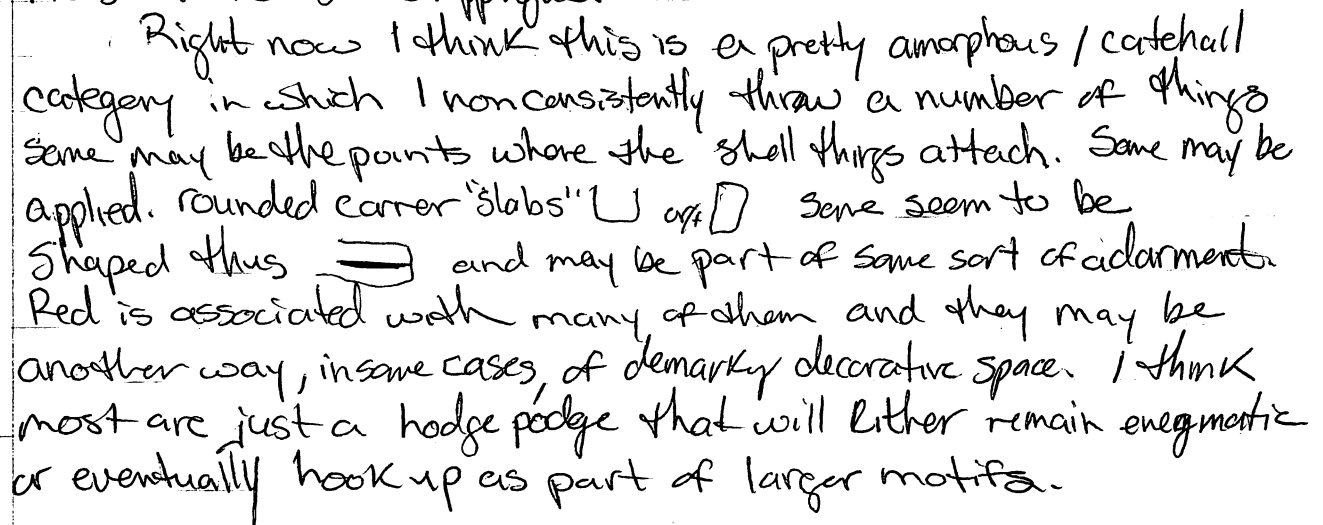 Right now I think this is a pretty amorphous / catchall
category in which I nonconsistently throw a number of things
some may be the points where the shell things attach. Some may be
applied. rounded corner "slabs" or some seem to be
shaped thus and may be part of some sort of adornment.
Red is associated with many of them and they may be
another way, in some cases, of decorative space. I think
most are just a hodge podge that will either remain enegmatic
or eventually hook up as part of larger motifs.